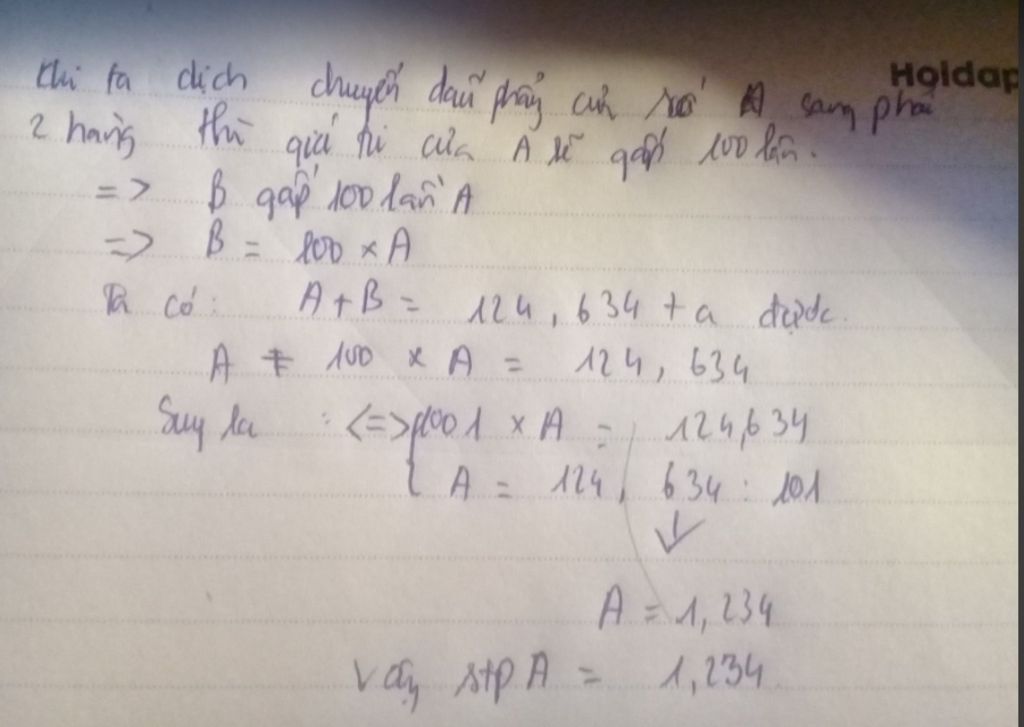 Holdap
Khi ta dịch chuyển dấu phẩy của số A sang phải
2 hàng thì giá trị của A sẽ gấp 100 lần.
=> B gấp 100 lần A
=> B = 100 x A
Ta có: A + B = 124,634 + a được.
A + 100 x A = 124,634
Suy ra : <=> 1001 x A = 124,634
A = 124,634 : 101
A = 1,234
Vậy stp A = 1,234